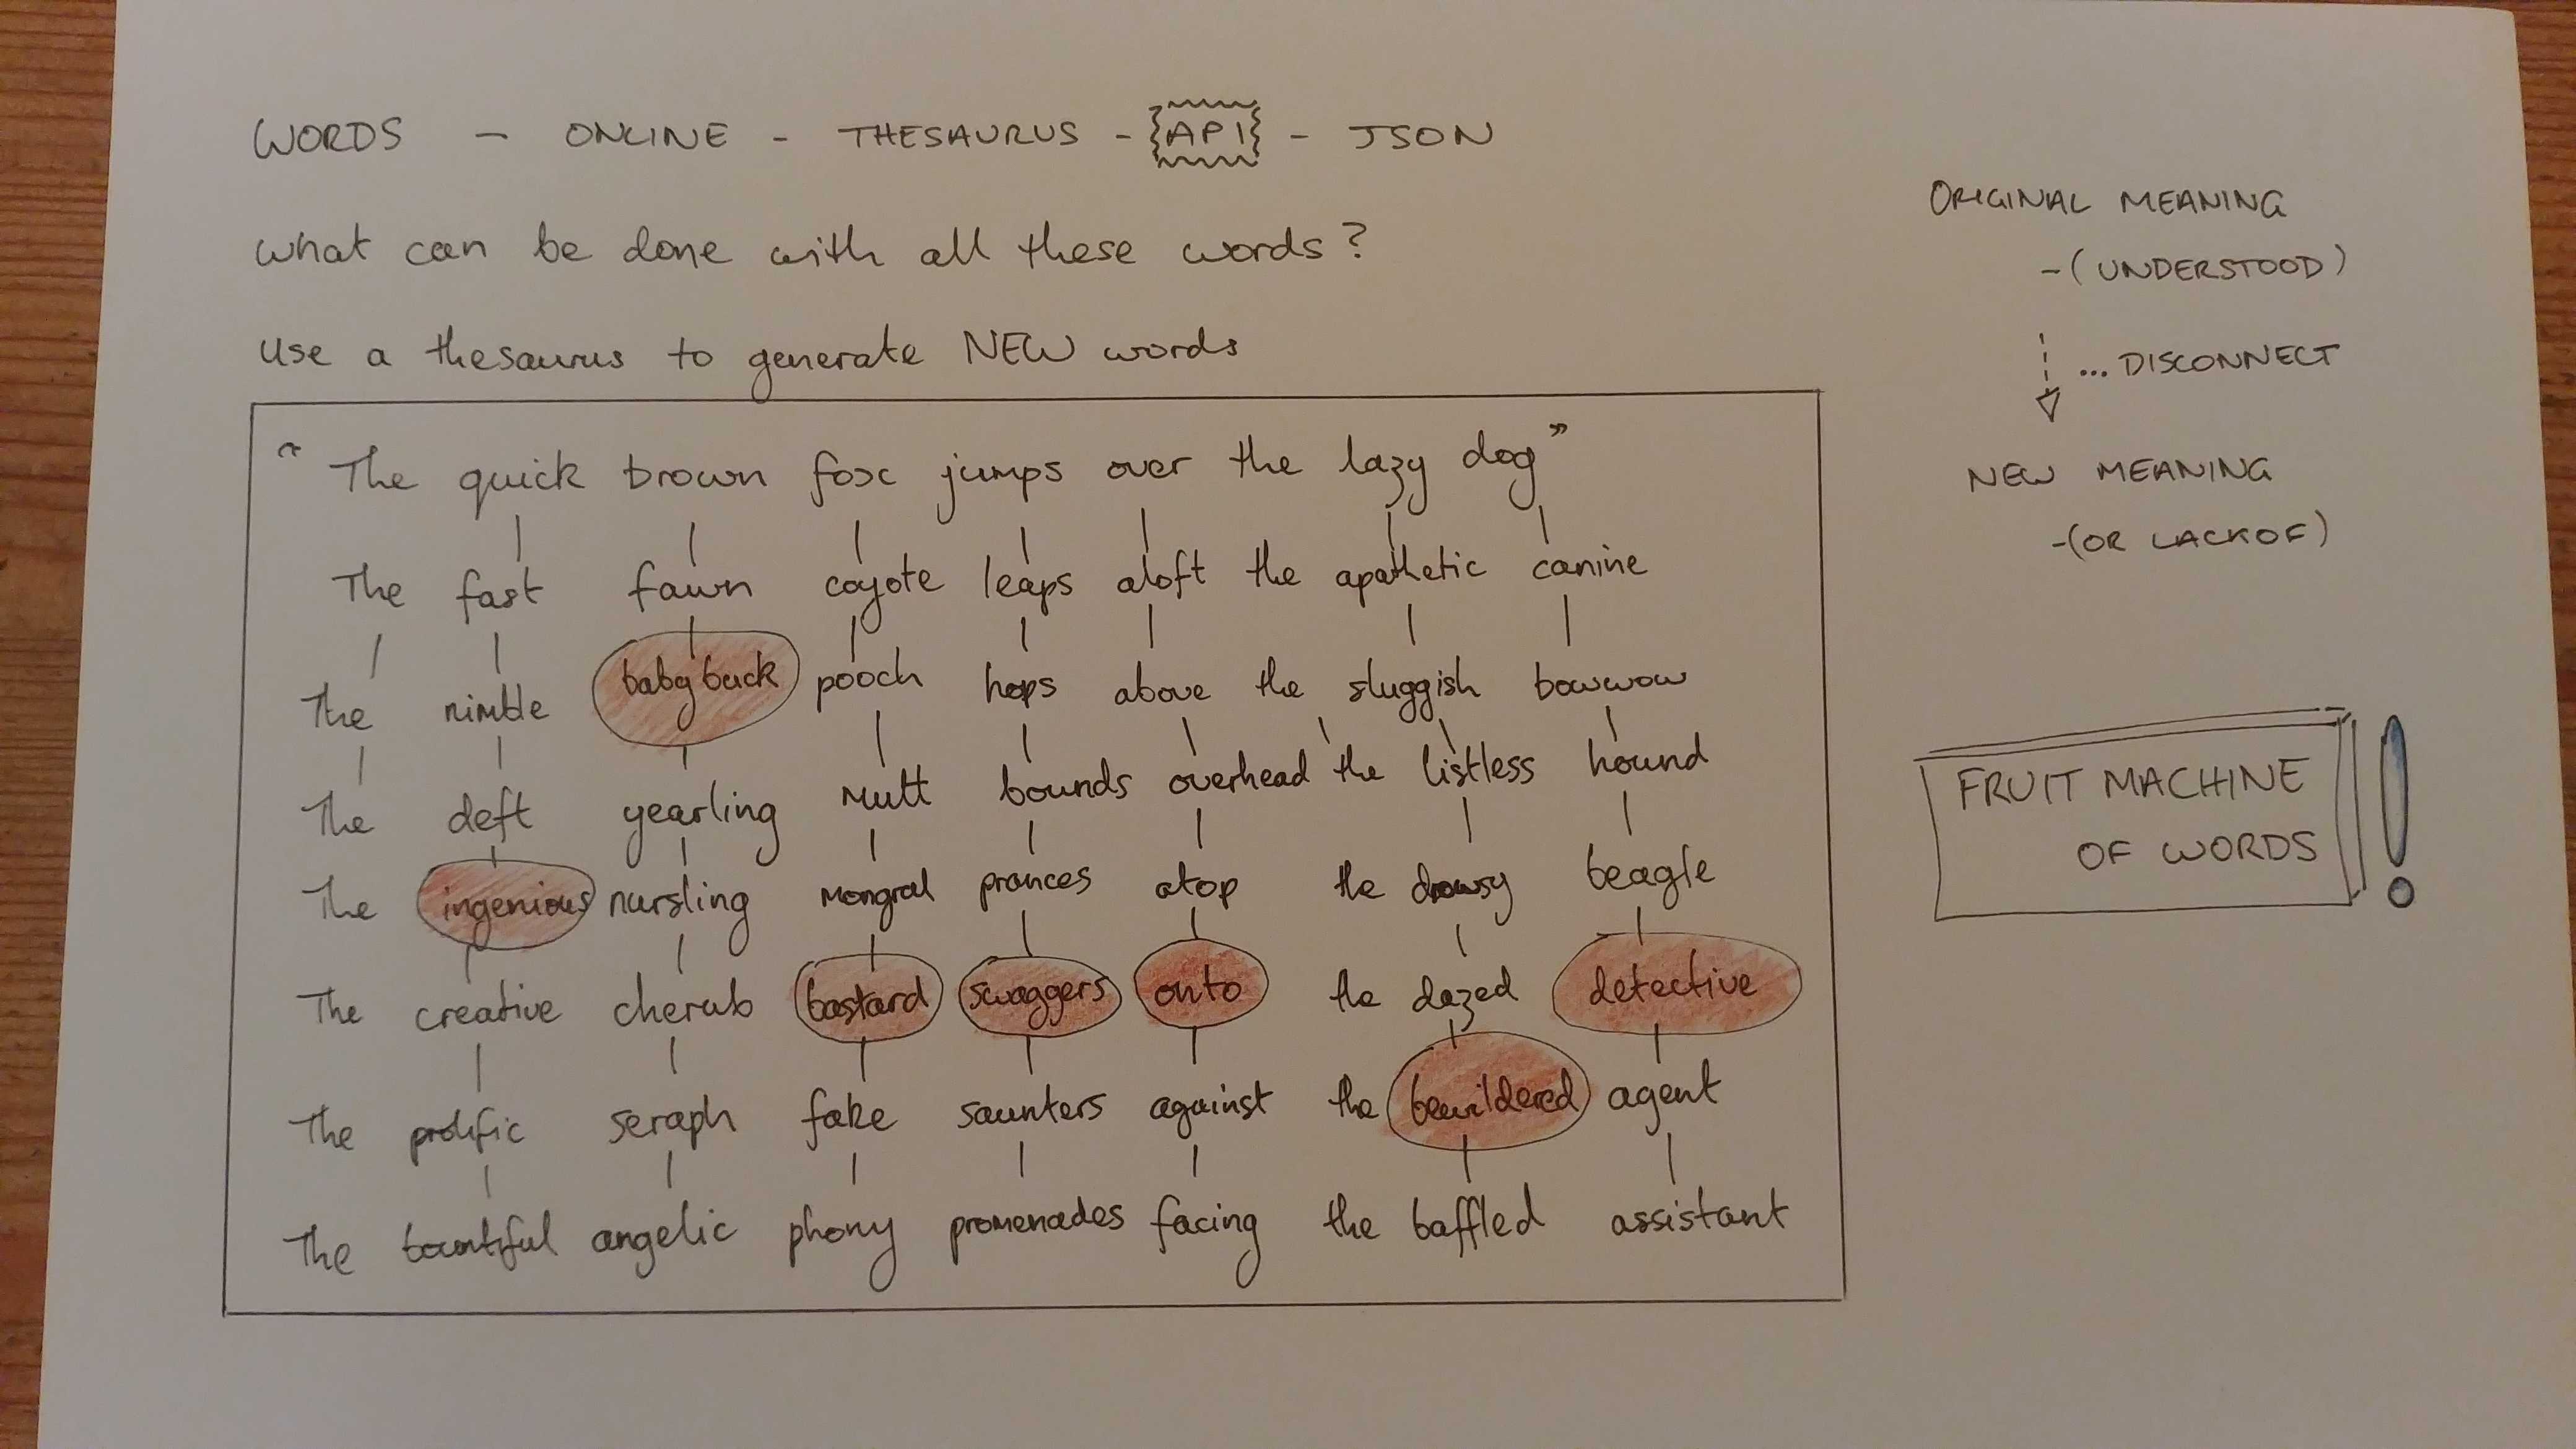 WORDS - ONLINE - THESAURUS - {API} - JSON
What can be done with all these words?
Use a thesaurus to generate NEW words
"The quick brown fox jumps over the lazy dog"
The fast fawn coyote leaps aloft the apathetic canine
The nimble baby buck pooch hops above the sluggish bowwow
The deft yearling mutt bounds overhead the listless hound
The ingenious nursling mongrel prances atop the drowsy beagle
The creative cherub bastard swaggers onto the dazed detective
The prolific seraph fake saunters against the bewildered agent
The bountiful angelic phony promenades facing the baffled assistant
ORIGINAL MEANING
- (UNDERSTOOD)
... DISCONNECT
NEW MEANING
- (OR LACK OF)
FRUIT MACHINE
OF WORDS
!